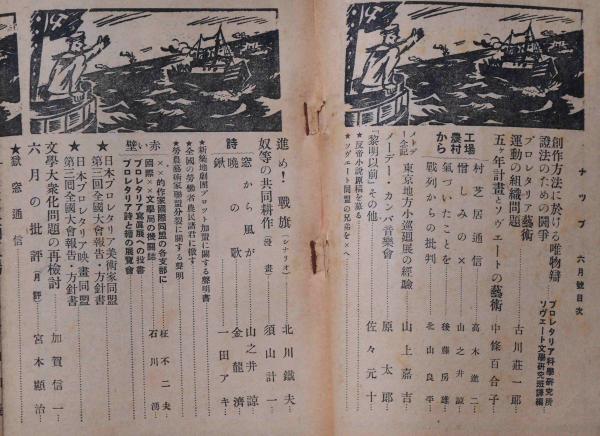 ナップ 六月號目次
創作方法に於ける唯物辯
證法のための鬪爭
プロレタリア科學研究所
ソヴェート文學研究班譯編
プロレタリア藝術
運動の組織問題
古川莊一郎
五ヶ年計畫とソヴェートの藝術
中條百合子
工場
農村
から
村芝居通信
高木進二
憎しみの×
山之井諒
氣づいたことを
後藤房雄
戰列からの批判
北山良平
メトデー全記
東京地方小巡囘展の經驗
山上嘉吉
メーデー・カンパ音樂會
原太郎
「黎明以前」その他
佐々元十
★反帝小説原稿を募る
★ソヴェート同盟の兄弟を×へ
進め!戰旗(シナリオ)
北川鐵夫
奴等の共同耕作(漫畫)
須山計一
詩
窓から風が
山之井諒
曉の歌
金龍濟
鍬
一田アキ
★新築地劇團プロット加盟に關する聲明書
★全國の勞働者農民諸君に檄す
★勞農藝術家聯盟分裂に關する聲明
赤い壁
××的作家國際同盟の各支部に
國際××文學局の機關誌
プロレタリア寫眞展への投書
プロレタリア詩と繪の展覽會
柾不二夫
石川湧
★日本プロレタリア美術家同盟
第三囘全國大會報告・方針書
★日本プロレタリア映畫同盟
第三囘全國大會報告・方針書
文學大衆化問題の再檢討
加賀信一
六月の批評(月評)
宮本顯治
★獄窓通信